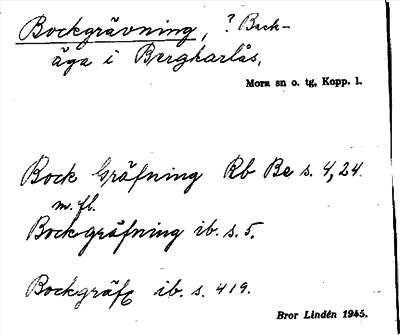 Bockgrävning, ? Back-
äga i Bergkarlås.
Mora sn o. tg, Kopp. l.
Bock Gräfning Rb Be s. 4, 24
m. fl.
Bockgräfning ib. s. 5.
Bockgräfe ib. s. 419.
Bror Lindén 1945.